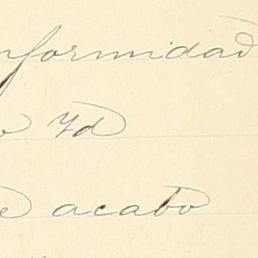 nformidad
o Yd
e acabo